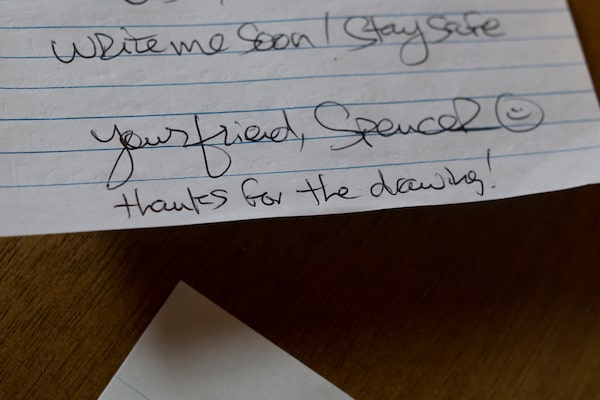 Write me soon! Stay safe
your friend, Spencer
thanks for the drawing!